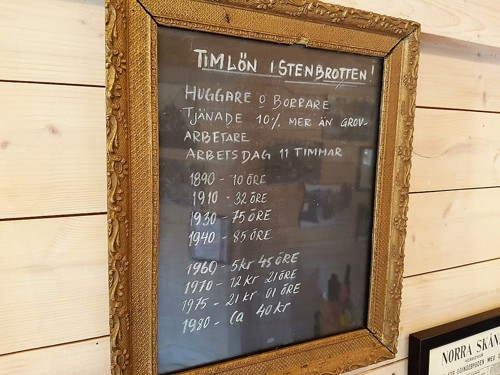 TIMLÖN I STENBROTTEN!
HUGGARE O BORRARE
TJÄNADE 10% MER ÄN GROV-
ARBETARE
ARBETSDAG 11 TIMMAR
1890 - 10 ÖRE
1910 - 32 ÖRE
1930 - 75 ÖRE
1940 - 85 ÖRE
1960 - 5 kr 45 ÖRE
1970 - 12 kr 21 ÖRE
1975 - 21 kr 01 ÖRE
1980 - Ca 40 kr
NORRA SKÅN
FÖR GOINGEBUDEN MED